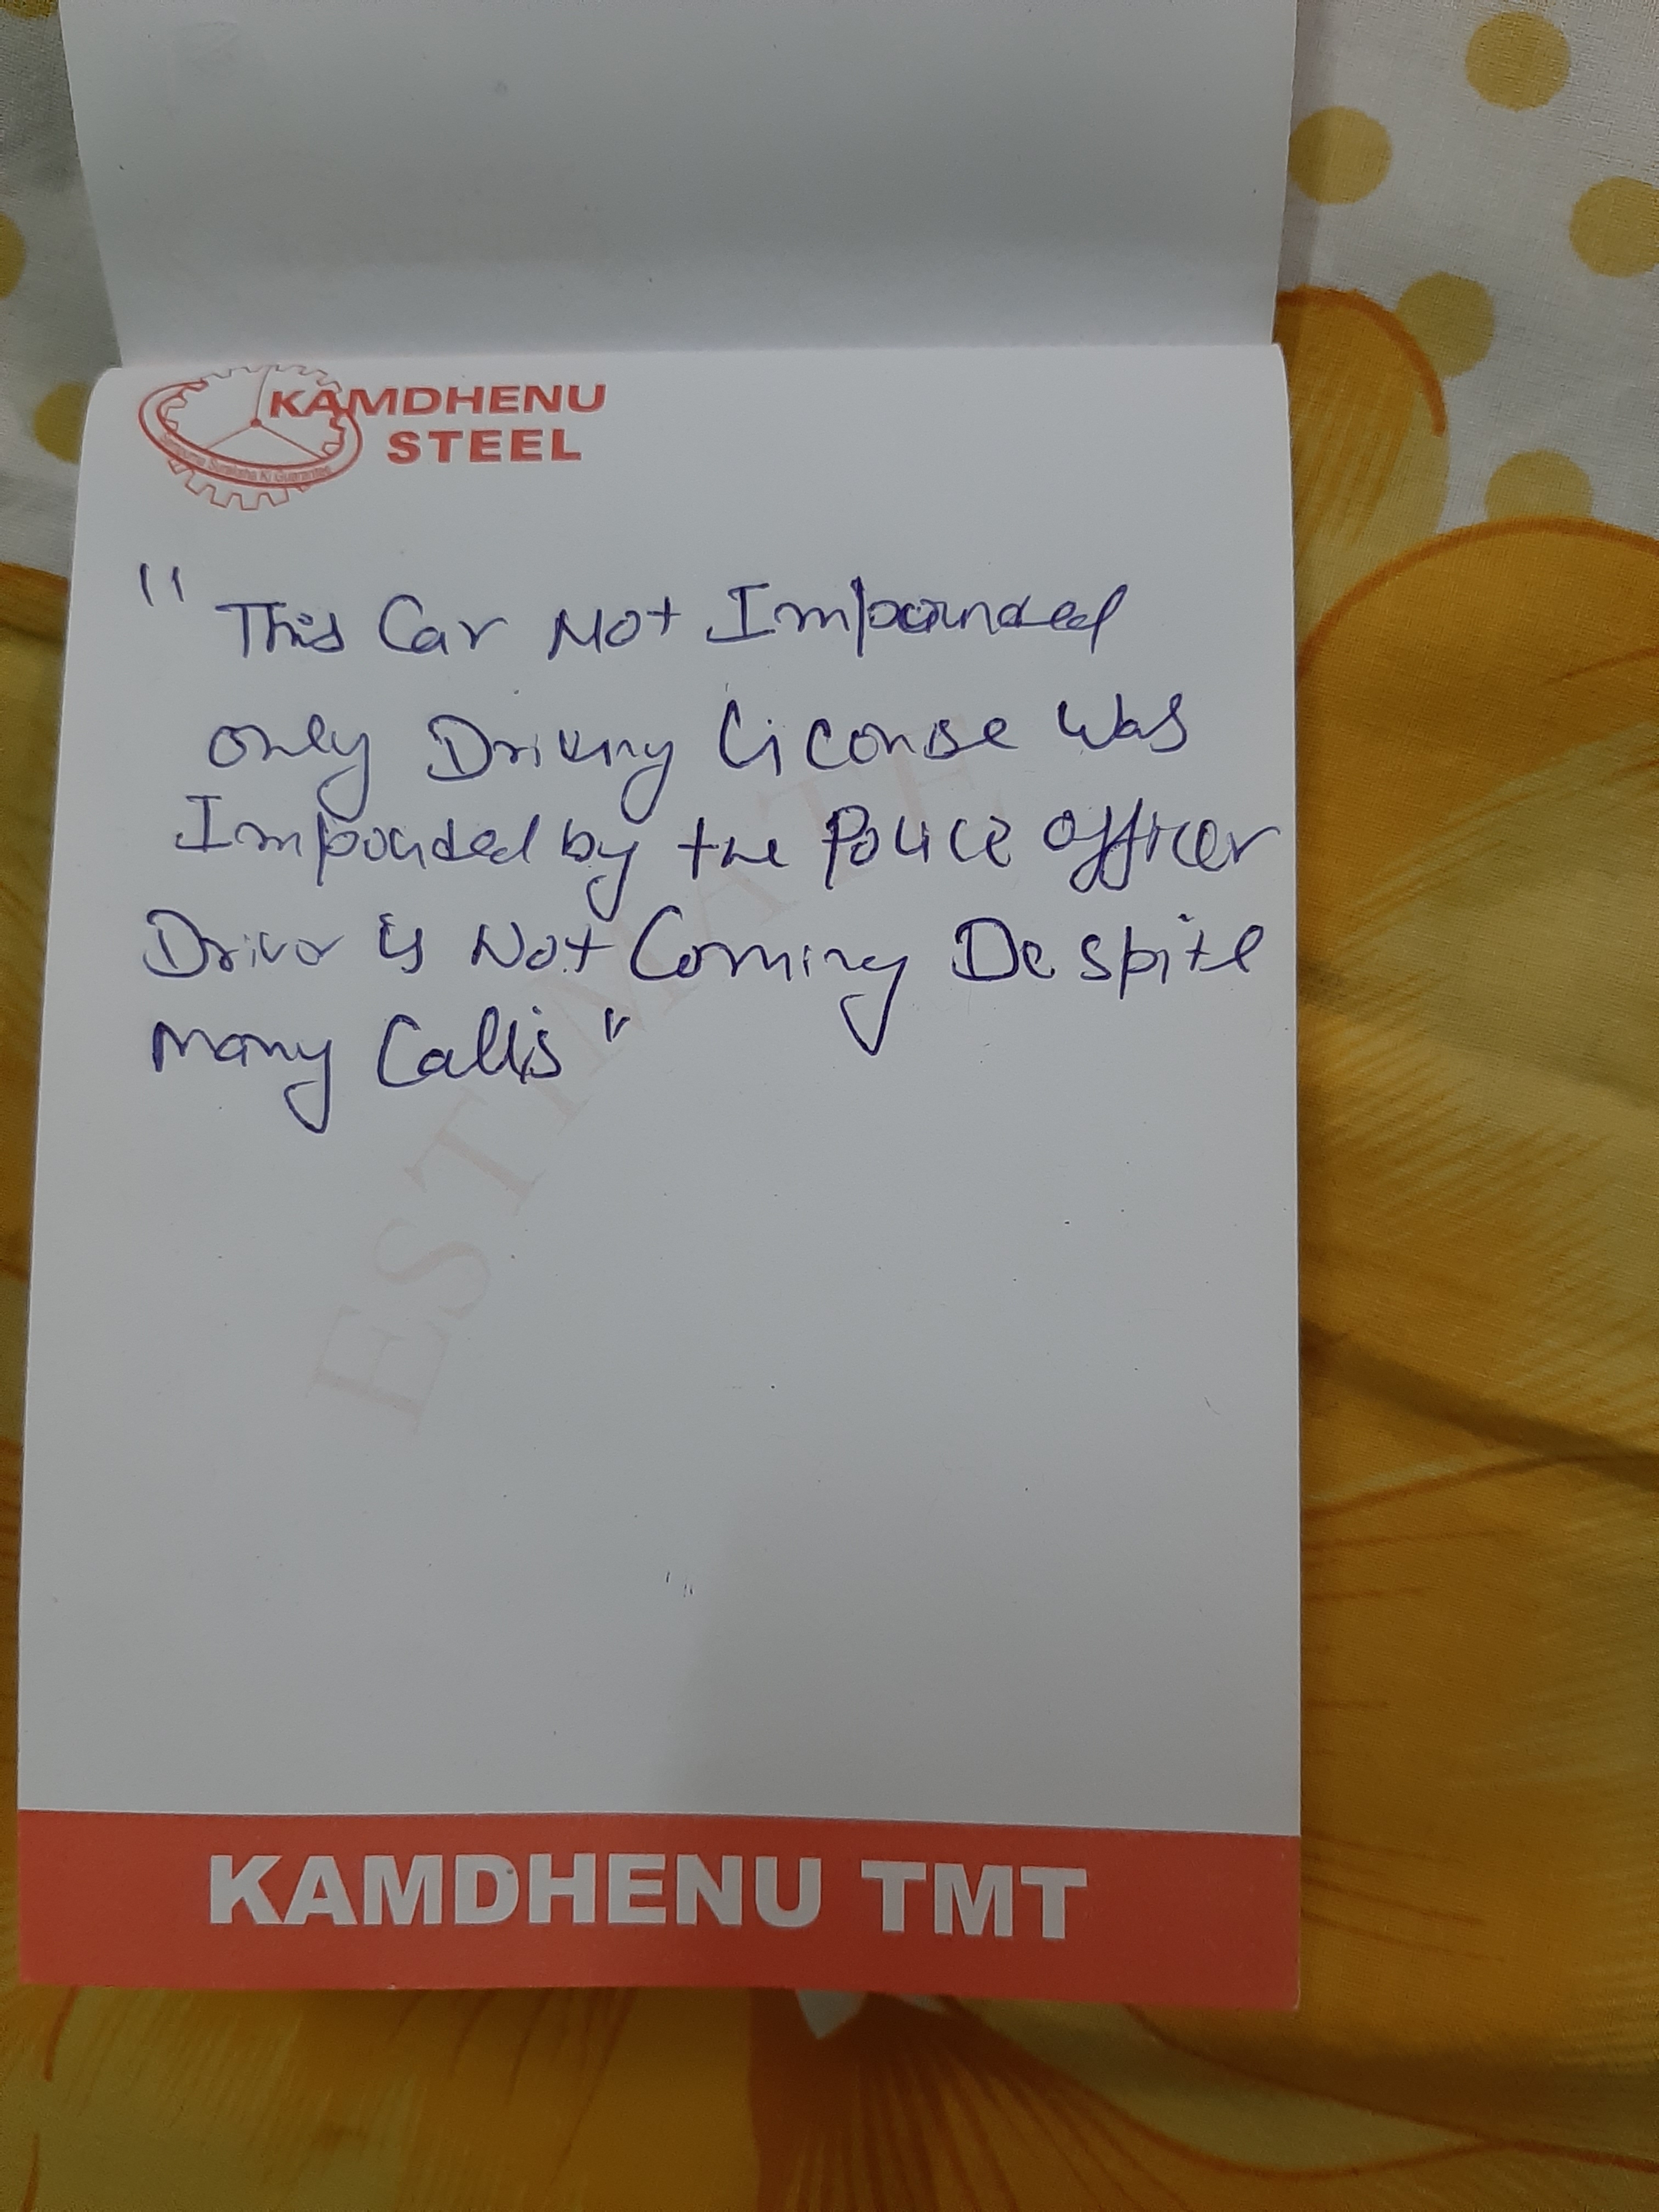 KAMDHENU
STEEL
"This Car Not Impounded
only Driving License Was
Impounded by the Police officer
Driver is Not Coming Despite
many Calls"
ESTIMATE
KAMDHENU TMT